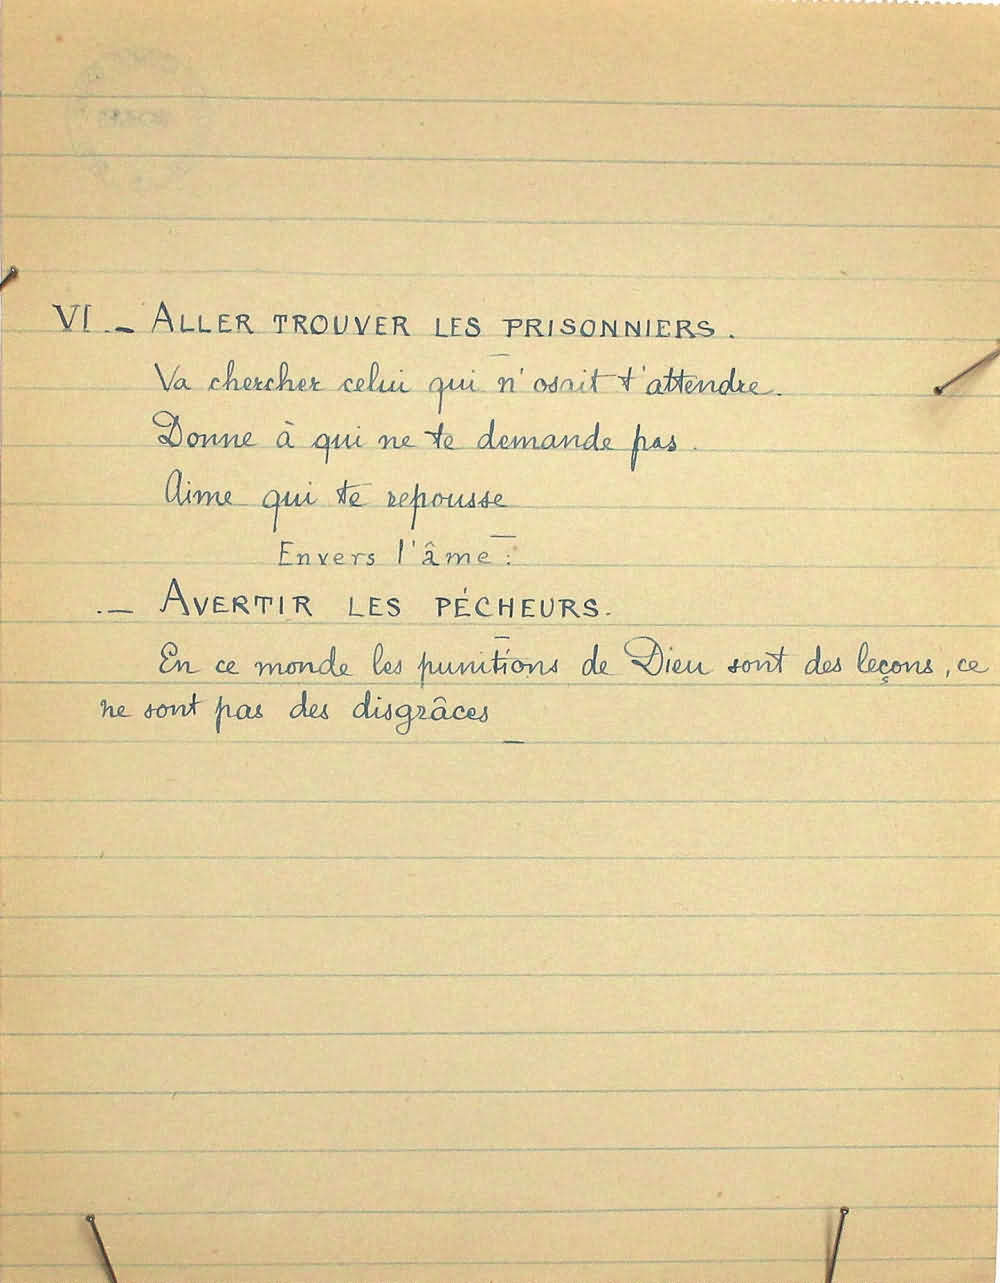 VI. — ALLER TROUVER LES PRISONNIERS.
Va chercher celui qui n'osait t'attendre.
Donne à qui ne te demande pas.
Aime qui te repousse
Envers l'âme :
. — AVERTIR LES PÉCHEURS.
En ce monde les punitions de Dieu sont des leçons, ce
ne sont pas des disgrâces